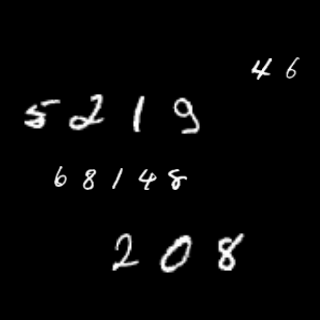 46
5219
68148
208